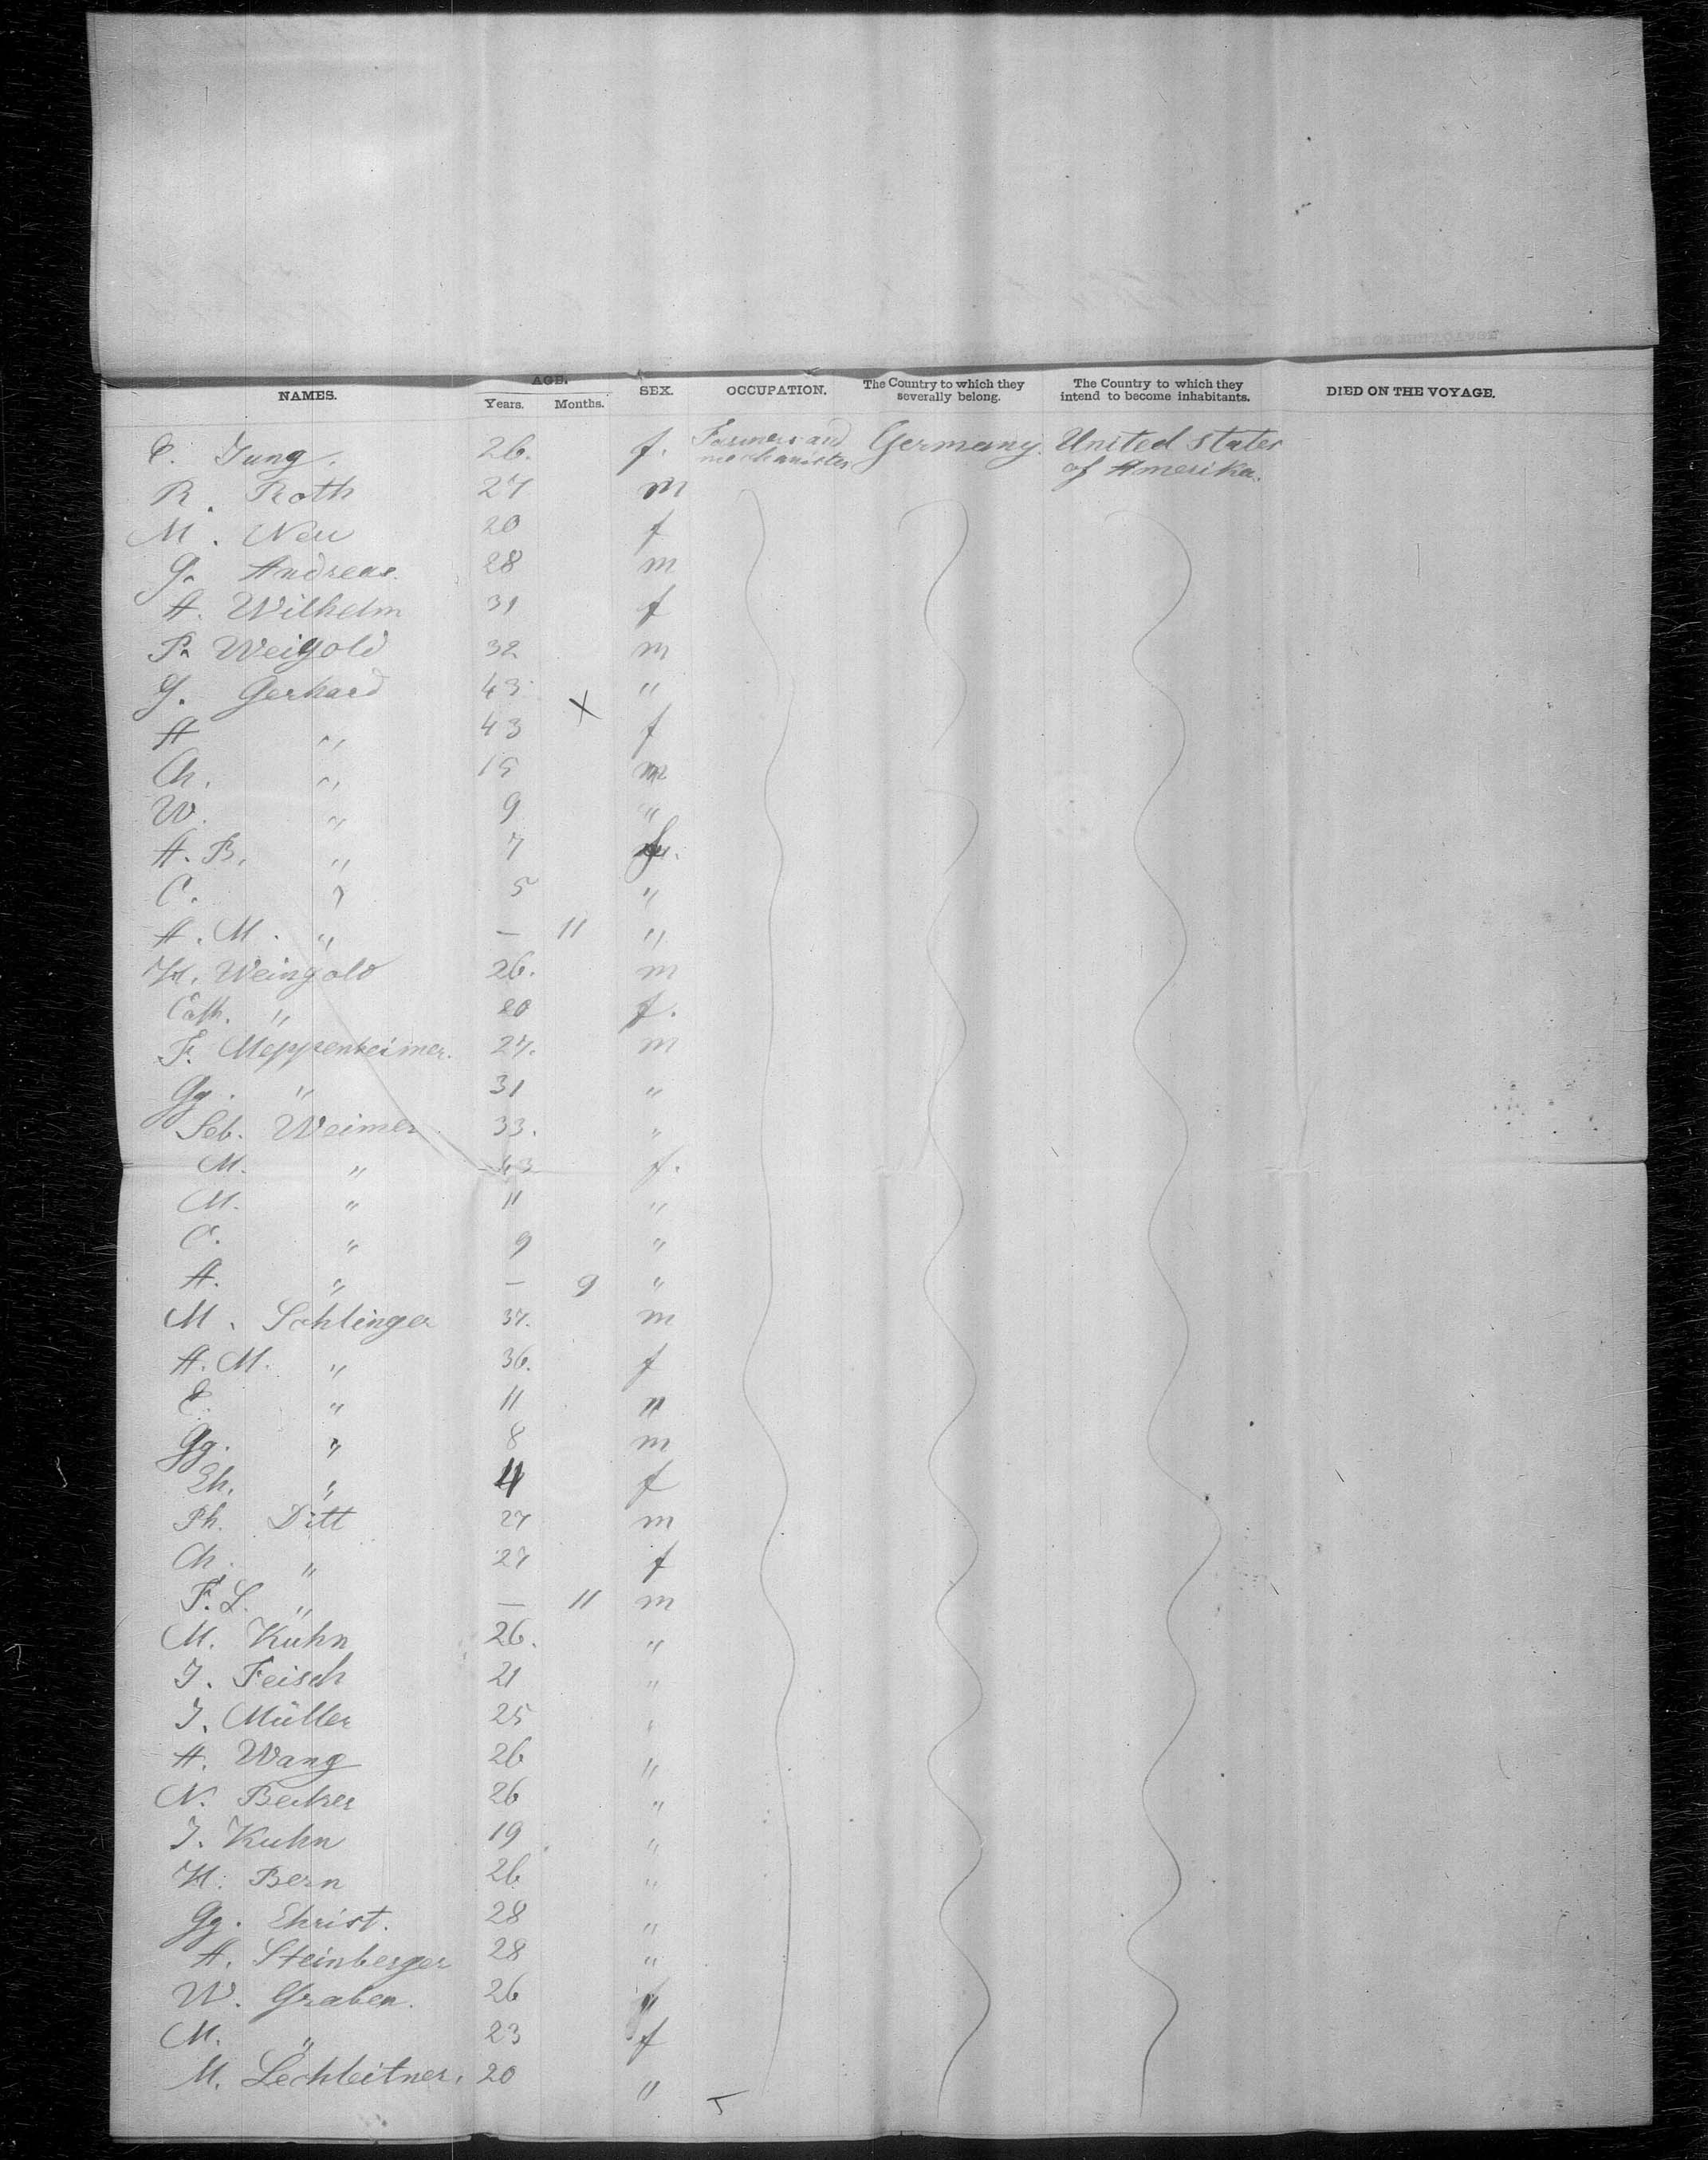 NAMES. AGE. Years. Months. SEX. OCCUPATION. The Country to which they severally belong. The Country to which they intend to become inhabitants. DIED ON THE VOYAGE.
C. Jung. 26. f. Farmers and mechanister Germany. United States of Amerika.
R. Roth 27 m
M. Neu 20 f
G. Andreas. 28 m
A. Wilhelm 31 f
P. Weigold 32 m
G. Gerhard 43 "
A " 43 X f
Ch. " 15 m
W. " 9 "
A. B. " 7 f.
C. " 5 "
A. M. " — 11 "
H. Weingold 26. m
Cath. " 20 f.
F. Meppenheimer. 27. m
Gg. " 31 "
Seb. Weimer 33. "
M. " 43 f.
M. " 11 "
C. " 9 "
A. " — 9 "
M. Schlinger 37. m
A. M. " 36. f
E. " 11 "
Gg. " 8 m
Eh. " 4 f
Ph. Ditt 27 m
Ch. " 27 f
F. L. " — 11 m
M. Kuhn 26. "
J. Feisch 21 "
J. Müller 25 "
A. Wang 26 "
N. Becker 26 "
J. Kuhn 19 "
H. Bern 26 "
Gg. Ehrist. 28 "
A. Steinberger 28 "
W. Graben. 26 "
M. " 23 f
M. Lechleitner. 20 "